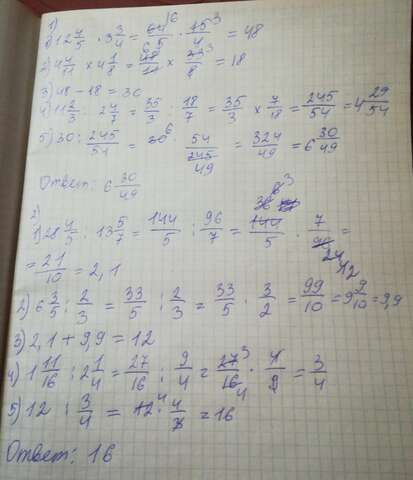 1)
1) 12 4/5 · 3 3/4 = 64/5 · 15/4 = 48
2) 4 4/11 × 4 1/8 = 48/11 × 33/8 = 18
3) 48 - 18 = 30
4) 11 2/3 : 2 4/7 = 35/3 : 18/7 = 35/3 × 7/18 = 245/54 = 4 29/54
5) 30 : 245/54 = 30 · 54/245 = 324/49 = 6 30/49
Ответ: 6 30/49
2)
1) 28 4/5 : 13 5/7 = 144/5 : 96/7 = 144/5 · 7/96 =
= 21/10 = 2,1
2) 6 3/5 : 2/3 = 33/5 : 2/3 = 33/5 · 3/2 = 99/10 = 9 9/10 = 9,9
3) 2,1 + 9,9 = 12
4) 1 11/16 : 2 1/4 = 27/16 : 9/4 = 27/16 · 4/9 = 3/4
5) 12 : 3/4 = 12 · 4/3 = 16
Ответ: 16